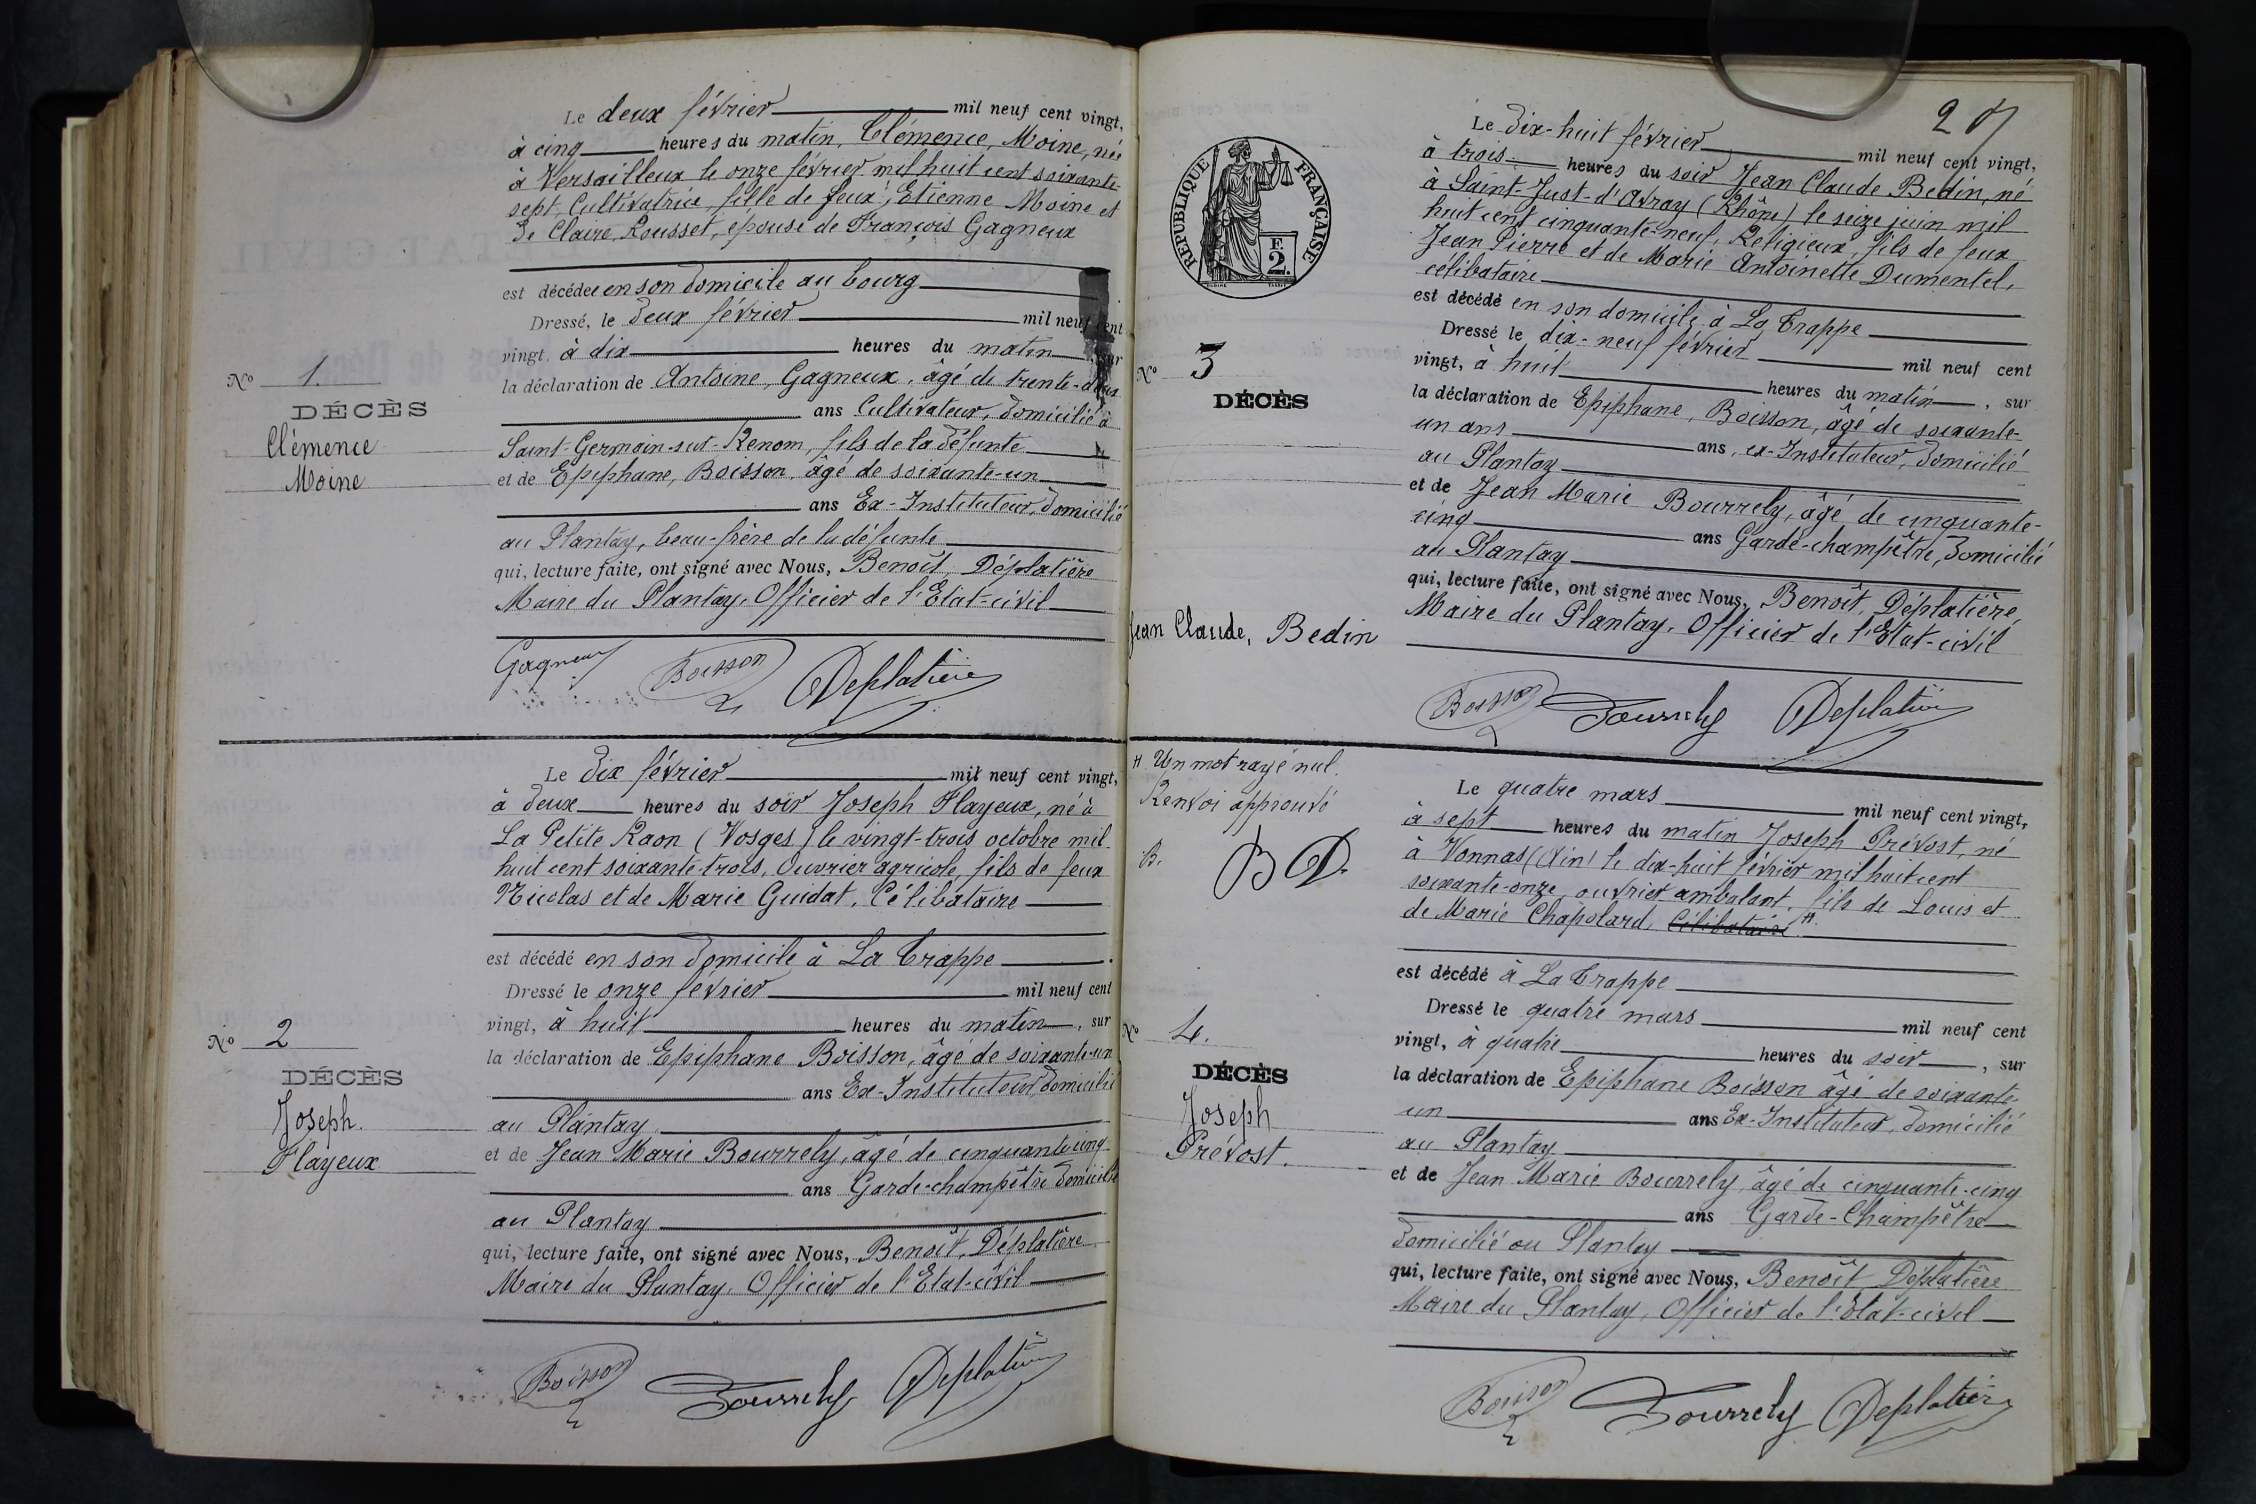 Le deux février mil neuf cent vingt,
à cinq heures du matin, Clémence, Moine, née
à Versailleux le onze février mil huit cent soixante-
sept, Cultivatrice, fille de feux, Etienne Moine et
de Claire, Rousset, épouse de François Gagneux
est décédée en son domicile au bourg
Dressé, le deux février mil neuf cent
vingt, à dix heures du matin, sur
la déclaration de Antoine, Gagneux, âgé de trente-deux
ans Cultivateur, domicilié à
Saint-Germain-sur-Renom, fils de la défunte
et de Epiphane, Boisson, âgé de soixante-un
ans Ex-Instituteur, domicilié
au Plantay, beau-frère de la défunte
qui, lecture faite, ont signé avec Nous, Benoît, Déplatière
Maire du Plantay, Officier de l'Etat-civil
Gagneux Boisson Deplatière
No 1.
DÉCÈS
Clémence
Moine
Le dix février mil neuf cent vingt,
à deux heures du soir Joseph Flayeux, né à
La Petite Raon (Vosges) le vingt-trois octobre mil
huit cent soixante-trois, Ouvrier agricole, fils de feux
Nicolas et de Marie Guidat, Célibataire
est décédé en son domicile à La Trappe
Dressé le onze février mil neuf cent
vingt, à huit heures du matin, sur
la déclaration de Epiphane Boisson, âgé de soixante-un
ans Ex-Instituteur, domicilié
au Plantay
et de Jean Marie Bourrely, âgé de cinquante-cinq
ans Garde-champêtre domicilié
au Plantay
qui, lecture faite, ont signé avec Nous, Benoît, Déplatière
Maire du Plantay, Officier de l'Etat-civil
Boisson Bourrely Deplatière
No 2
DÉCÈS
Joseph
Flayeux
RÉPUBLIQUE FRANÇAISE
F.
2.
Le dix-huit février mil neuf cent vingt,
à trois heures du soir Jean Claude Bedin, né
à Saint-Just-d'Avray (Rhône) le seize juin mil
huit cent cinquante-neuf, Religieux, fils de feux
Jean Pierre et de Marie Antoinette Dumentel,
célibataire
est décédé en son domicile à La Trappe
Dressé le dix-neuf février mil neuf cent
vingt, à huit heures du matin, sur
la déclaration de Epiphane, Boisson, âgé de soixante-
un ans ans, ex-Instituteur, domicilié
au Plantay
et de Jean Marie Bourrely, âgé de cinquante-
cinq ans Garde-champêtre, domicilié
au Plantay
qui, lecture faite, ont signé avec Nous, Benoît, Déplatière,
Maire du Plantay, Officier de l'Etat-civil
Boisson Bourrely Deplatière
No 3
DÉCÈS
Jean Claude, Bedin
# Un mot rayé nul.
Renvoi approuvé
B. B D.
Le quatre mars mil neuf cent vingt,
à sept heures du matin Joseph Prévost, né
à Vonnas (Ain) le dix-huit février mil huit cent
soixante-onze, ouvrier ambulant, fils de Louis et
de Marie Chapolard, Célibataire #
est décédé à La Trappe
Dressé le quatre mars mil neuf cent
vingt, à quatre heures du soir, sur
la déclaration de Epiphane Boisson âgé de soixante-
un ans Ex-Instituteur, domicilié
au Plantay
et de Jean Marie Bourrely, âgé de cinquante-cinq
ans Garde-Champêtre
domicilié au Plantay
qui, lecture faite, ont signé avec Nous, Benoît Déplatière
Maire du Plantay, Officier de l'Etat-civil
Boisson Bourrely Deplatière
No 4.
DÉCÈS
Joseph
Prévost.